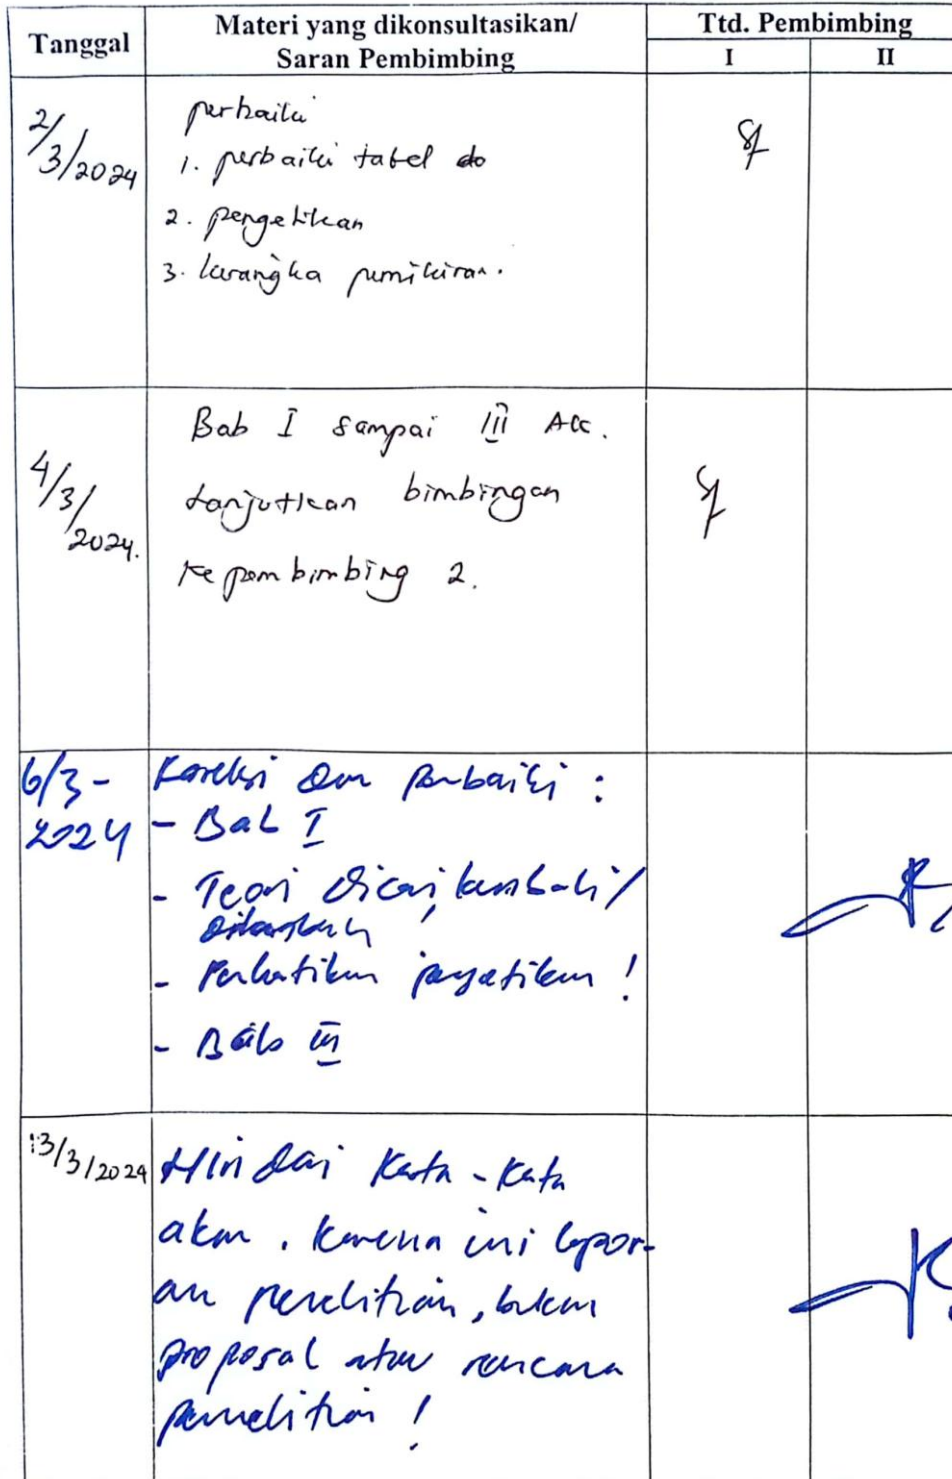 Tanggal
Materi yang dikonsultasikan/
Saran Pembimbing
Ttd. Pembimbing
I
II
2/3/2024
perbaiki
1. perbaiki tabel do
2. pengetikan
3. kerangka pemikiran.
4/3/
2024.
Bab I sampai III Acc.
Lanjutkan bimbingan
Ke pembimbing 2.
6/3-
2024
Koreksi dan perbaiki :
- Bab I
- Teori dicari kembali/
ditambah
- Perhatikan pengetikan !
- Bab III
13/3/2024
Hindari Kata-Kata
akan, karena ini lapor-
an penelitian, bukan
proposal atau rencana
penelitian !